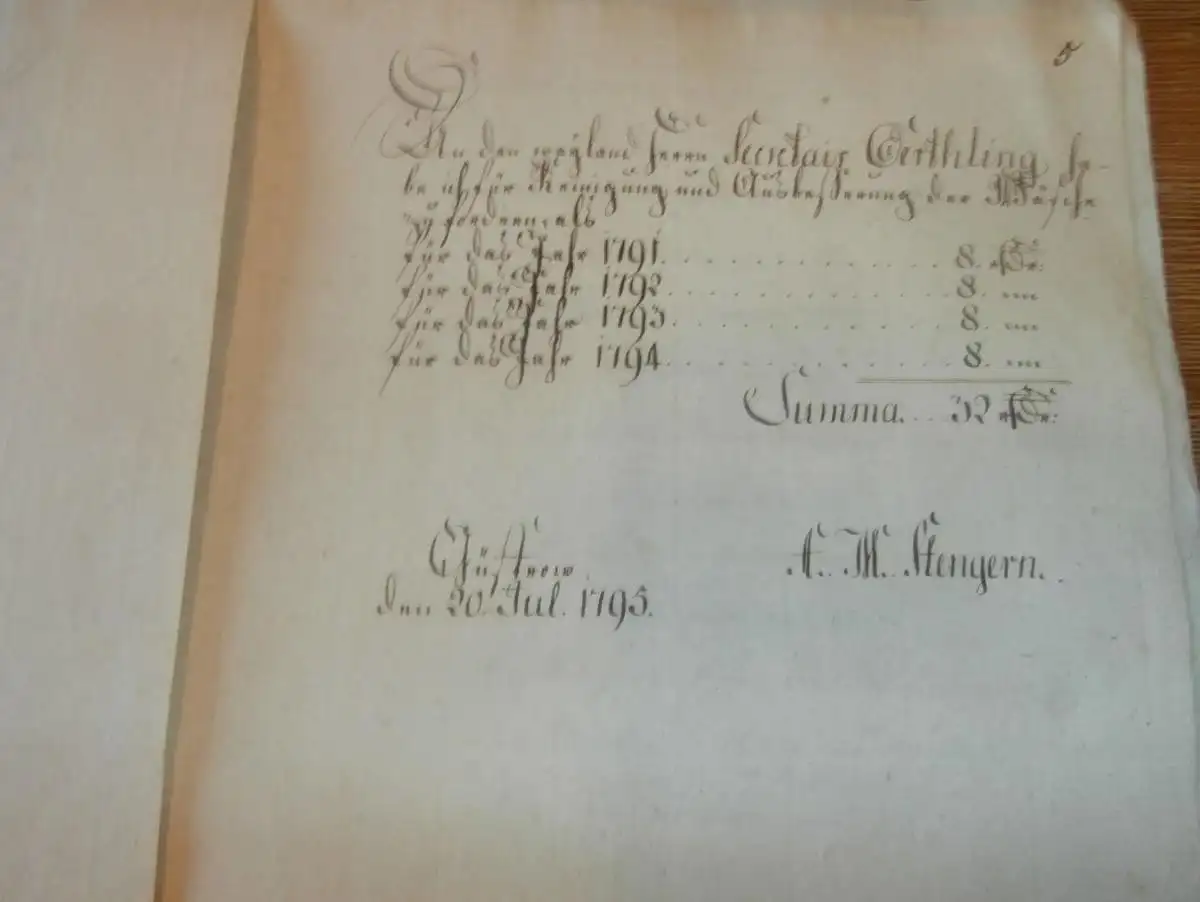 5
An den weyland Herrn Secretair Oerthling ha-
be ich für Reinigung und Ausbeßerung der Wäsche
zu fordern, als
für das Jahr 1791. . . . . . . . . . . . . . 8. rthlr.
für das Jahr 1792 . . . . . . . . . . . . . . 8. „„
für das Jahr 1793 . . . . . . . . . . . . . . 8. „„
für das Jahr 1794 . . . . . . . . . . . . . . 8. „„
Summa. . . 32 rthlr.
Güstrow A. M. Stengern.
den 20. Jul. 1795.